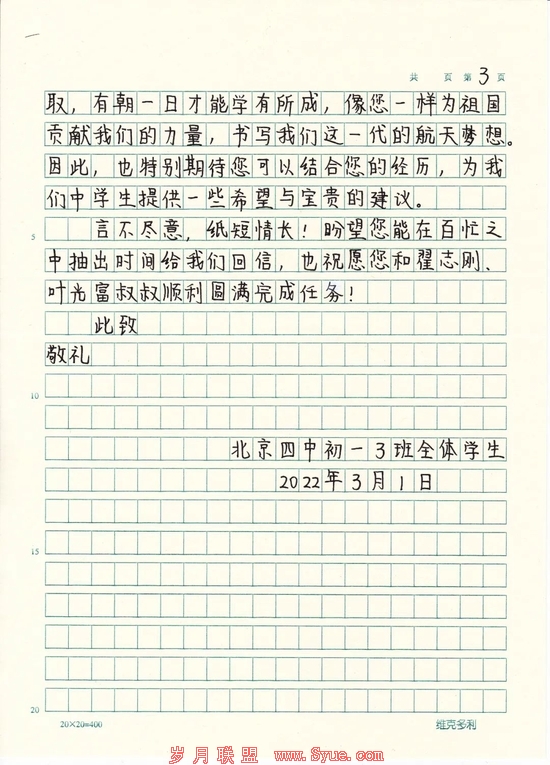 共 页 第 3 页
取，有朝一日才能学有所成，像您一样为祖国
贡献我们的力量，书写我们这一代的航天梦想。
因此，也特别期待您可以结合您的经历，为我
们中学生提供一些希望与宝贵的建议。
5
言不尽意，纸短情长！盼望您能在百忙之
中抽出时间给我们回信，也祝愿您和翟志刚、
叶光富叔叔顺利圆满完成任务！
此致
敬礼
10
北京四中初一3班全体学生
2022年3月1日
15
20
20×20=400 维克多利
岁月联盟 www.Syue.com